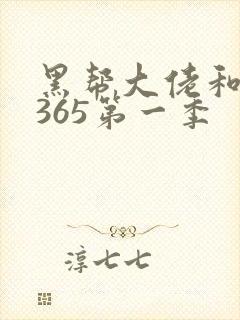 黑帮大佬和
365第一季
淳七七